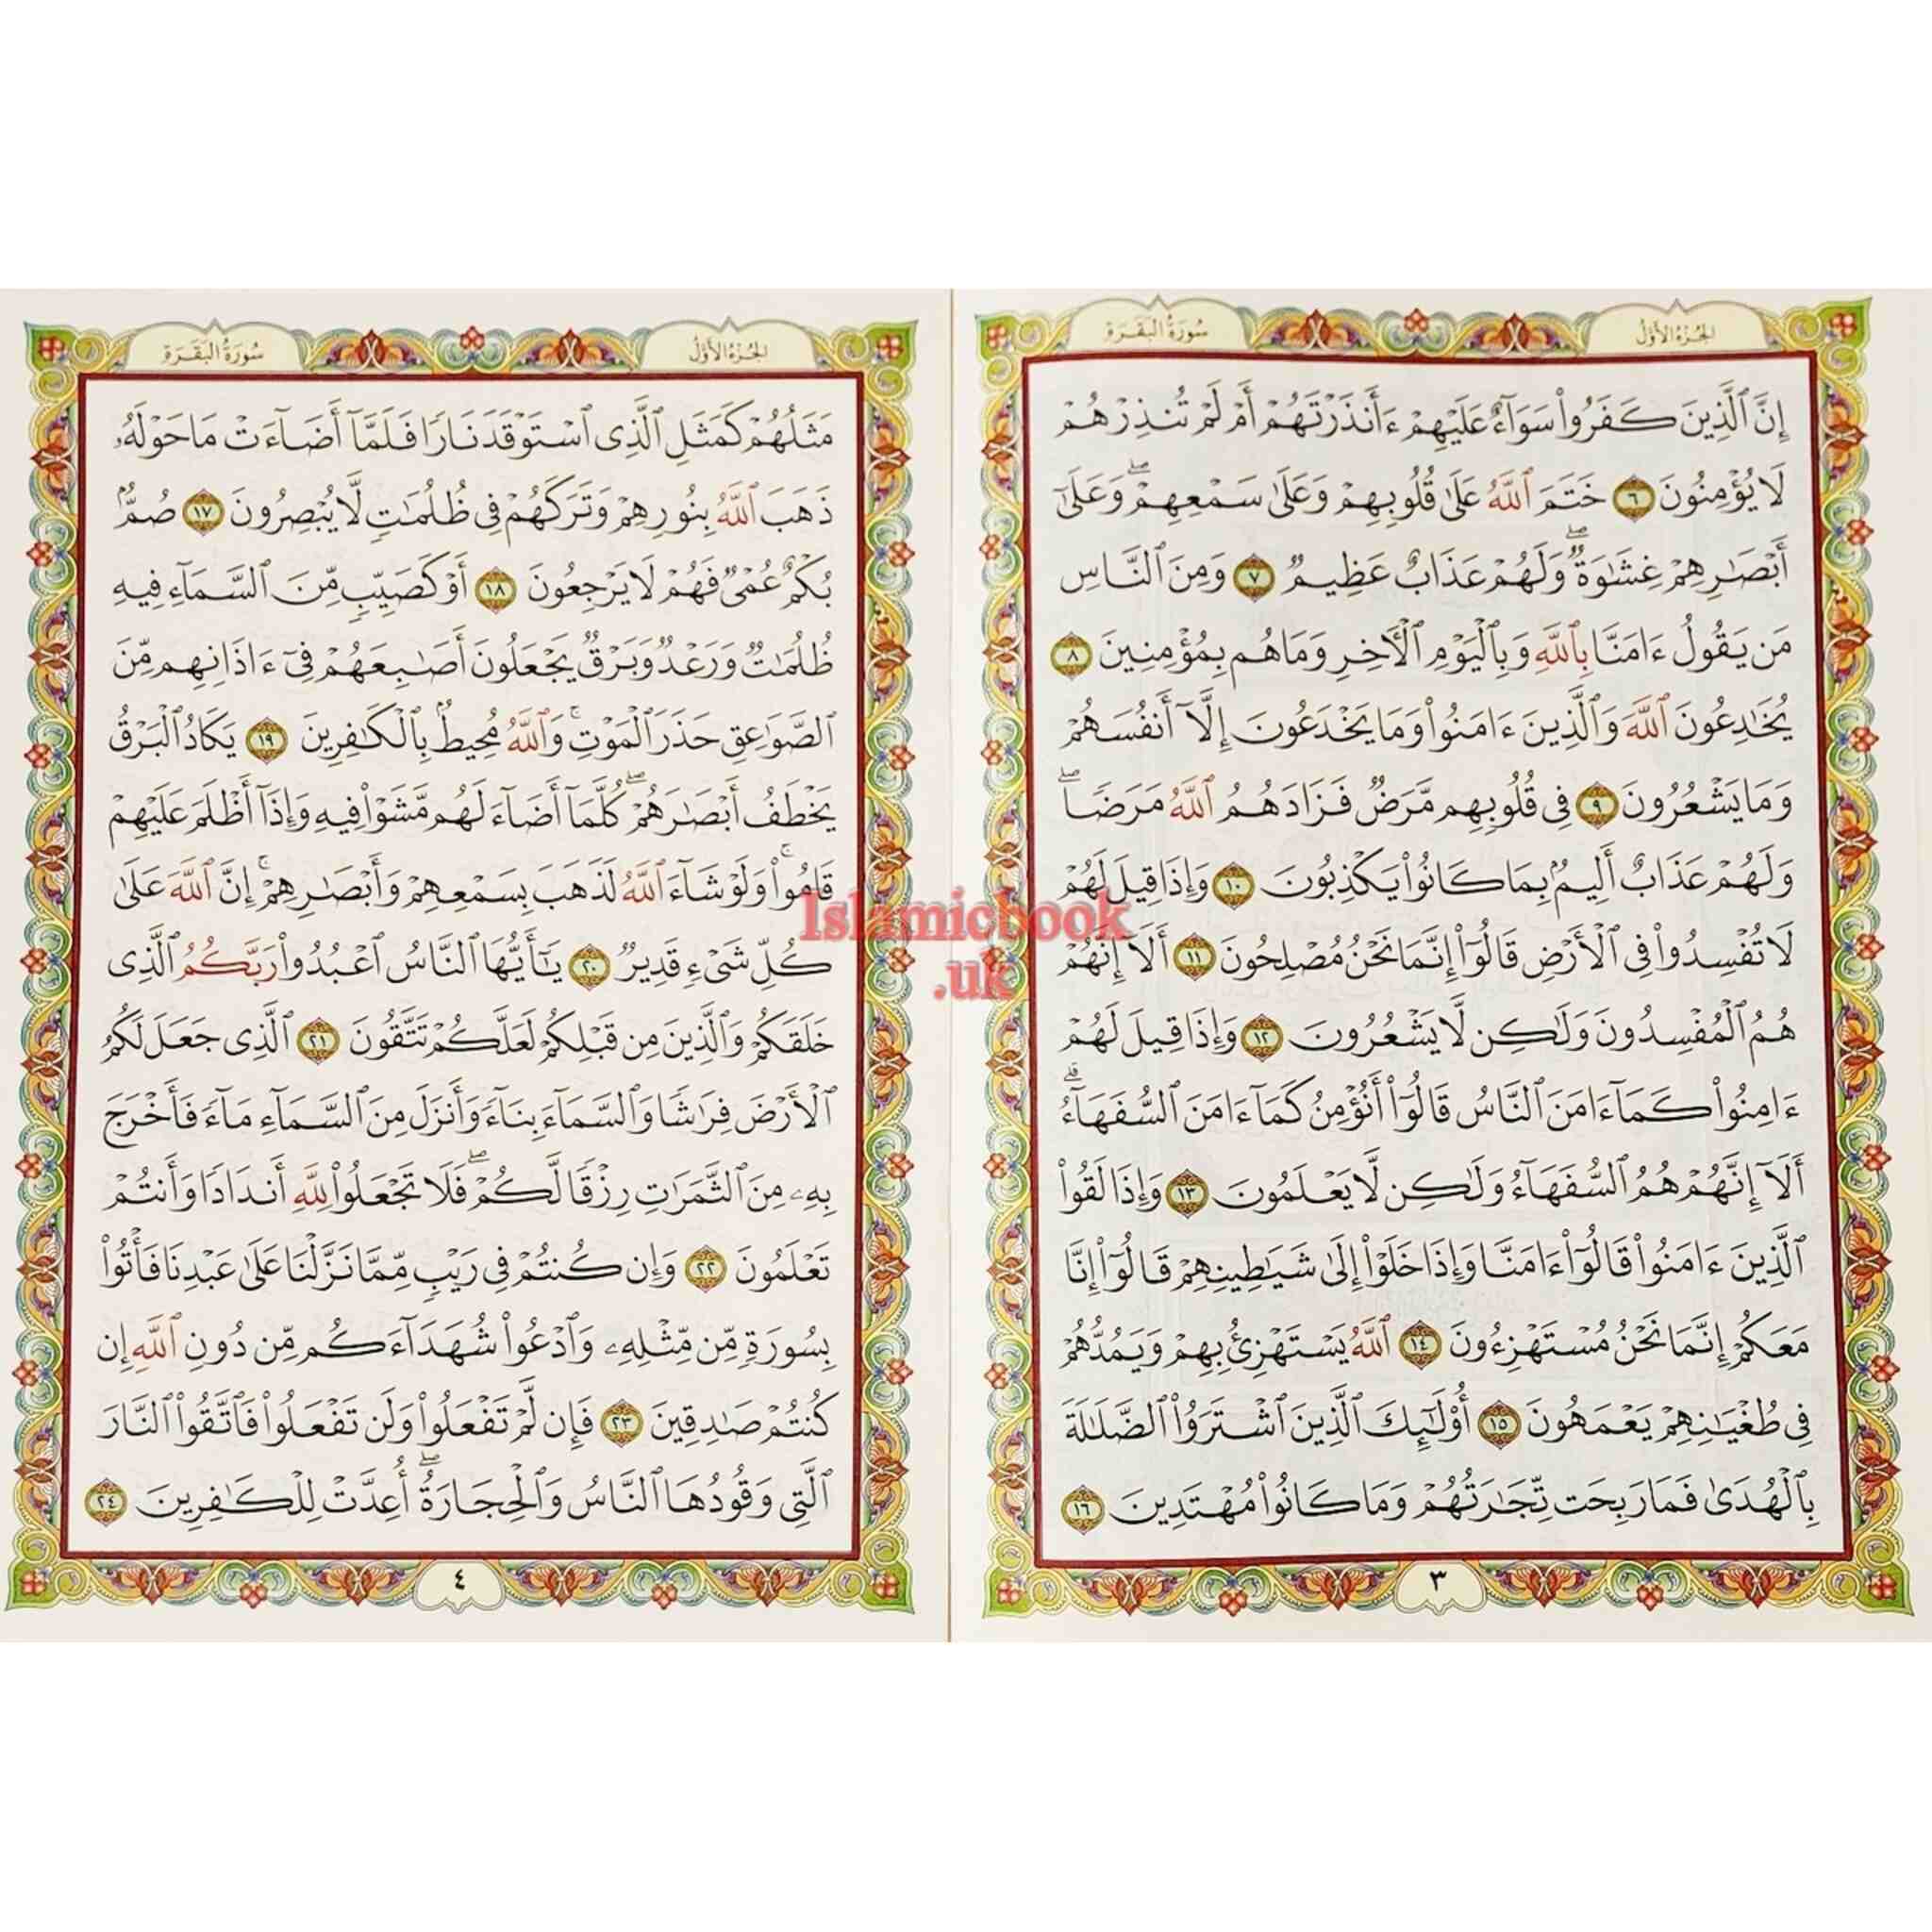 الجزء الأول
سورة البقرة
إِنَّ ٱلَّذِينَ كَفَرُوا۟ سَوَآءٌ عَلَيْهِمْ ءَأَنذَرْتَهُمْ أَمْ لَمْ تُنذِرْهُمْ
لَا يُؤْمِنُونَ ٦ خَتَمَ ٱللَّهُ عَلَىٰ قُلُوبِهِمْ وَعَلَىٰ سَمْعِهِمْ ۖ وَعَلَىٰٓ
أَبْصَٰرِهِمْ غِشَٰوَةٌ ۖ وَلَهُمْ عَذَابٌ عَظِيمٌ ٧ وَمِنَ ٱلنَّاسِ
مَن يَقُولُ ءَامَنَّا بِٱللَّهِ وَبِٱلْيَوْمِ ٱلْـَٔاخِرِ وَمَا هُم بِمُؤْمِنِينَ ٨
يُخَٰدِعُونَ ٱللَّهَ وَٱلَّذِينَ ءَامَنُوا۟ وَمَا يَخْدَعُونَ إِلَّآ أَنفُسَهُمْ
وَمَا يَشْعُرُونَ ٩ فِى قُلُوبِهِم مَّرَضٌ فَزَادَهُمُ ٱللَّهُ مَرَضًا ۖ
وَلَهُمْ عَذَابٌ أَلِيمٌۢ بِمَا كَانُوا۟ يَكْذِبُونَ ١٠ وَإِذَا قِيلَ لَهُمْ
لَا تُفْسِدُوا۟ فِى ٱلْأَرْضِ قَالُوٓا۟ إِنَّمَا نَحْنُ مُصْلِحُونَ ١١ أَلَآ إِنَّهُمْ
هُمُ ٱلْمُفْسِدُونَ وَلَٰكِن لَّا يَشْعُرُونَ ١٢ وَإِذَا قِيلَ لَهُمْ
ءَامِنُوا۟ كَمَآ ءَامَنَ ٱلنَّاسُ قَالُوٓا۟ أَنُؤْمِنُ كَمَآ ءَامَنَ ٱلسُّفَهَآءُ ۗ
أَلَآ إِنَّهُمْ هُمُ ٱلسُّفَهَآءُ وَلَٰكِن لَّا يَعْلَمُونَ ١٣ وَإِذَا لَقُوا۟
ٱلَّذِينَ ءَامَنُوا۟ قَالُوٓا۟ ءَامَنَّا وَإِذَا خَلَوْا۟ إِلَىٰ شَيَٰطِينِهِمْ قَالُوٓا۟ إِنَّا
مَعَكُمْ إِنَّمَا نَحْنُ مُسْتَهْزِءُونَ ١٤ ٱللَّهُ يَسْتَهْزِئُ بِهِمْ وَيَمُدُّهُمْ
فِى طُغْيَٰنِهِمْ يَعْمَهُونَ ١٥ أُو۟لَٰٓئِكَ ٱلَّذِينَ ٱشْتَرَوُا۟ ٱلضَّلَٰلَةَ
بِٱلْهُدَىٰ فَمَا رَبِحَت تِّجَٰرَتُهُمْ وَمَا كَانُوا۟ مُهْتَدِينَ ١٦
٣
الجزء الأول
سورة البقرة
مَثَلُهُمْ كَمَثَلِ ٱلَّذِى ٱسْتَوْقَدَ نَارًا فَلَمَّآ أَضَآءَتْ مَا حَوْلَهُۥ
ذَهَبَ ٱللَّهُ بِنُورِهِمْ وَتَرَكَهُمْ فِى ظُلُمَٰتٍ لَّا يُبْصِرُونَ ١٧ صُمٌّۢ
بُكْمٌ عُمْىٌ فَهُمْ لَا يَرْجِعُونَ ١٨ أَوْ كَصَيِّبٍ مِّنَ ٱلسَّمَآءِ فِيهِ
ظُلُمَٰتٌ وَرَعْدٌ وَبَرْقٌ يَجْعَلُونَ أَصَٰبِعَهُمْ فِىٓ ءَاذَانِهِم مِّنَ
ٱلصَّوَٰعِقِ حَذَرَ ٱلْمَوْتِ ۚ وَٱللَّهُ مُحِيطٌۢ بِٱلْكَٰفِرِينَ ١٩ يَكَادُ ٱلْبَرْقُ
يَخْطَفُ أَبْصَٰرَهُمْ ۖ كُلَّمَآ أَضَآءَ لَهُم مَّشَوْا۟ فِيهِ وَإِذَآ أَظْلَمَ عَلَيْهِمْ
قَامُوا۟ ۚ وَلَوْ شَآءَ ٱللَّهُ لَذَهَبَ بِسَمْعِهِمْ وَأَبْصَٰرِهِمْ ۚ إِنَّ ٱللَّهَ عَلَىٰ
كُلِّ شَىْءٍ قَدِيرٌ ٢٠ يَٰٓأَيُّهَا ٱلنَّاسُ ٱعْبُدُوا۟ رَبَّكُمُ ٱلَّذِى
خَلَقَكُمْ وَٱلَّذِينَ مِن قَبْلِكُمْ لَعَلَّكُمْ تَتَّقُونَ ٢١ ٱلَّذِى جَعَلَ لَكُمُ
ٱلْأَرْضَ فِرَٰشًا وَٱلسَّمَآءَ بِنَآءً وَأَنزَلَ مِنَ ٱلسَّمَآءِ مَآءً فَأَخْرَجَ
بِهِۦ مِنَ ٱلثَّمَرَٰتِ رِزْقًا لَّكُمْ ۖ فَلَا تَجْعَلُوا۟ لِلَّهِ أَندَادًا وَأَنتُمْ
تَعْلَمُونَ ٢٢ وَإِن كُنتُمْ فِى رَيْبٍ مِّمَّا نَزَّلْنَا عَلَىٰ عَبْدِنَا فَأْتُوا۟
بِسُورَةٍ مِّن مِّثْلِهِۦ وَٱدْعُوا۟ شُهَدَآءَكُم مِّن دُونِ ٱللَّهِ إِن
كُنتُمْ صَٰدِقِينَ ٢٣ فَإِن لَّمْ تَفْعَلُوا۟ وَلَن تَفْعَلُوا۟ فَٱتَّقُوا۟ ٱلنَّارَ
ٱلَّتِى وَقُودُهَا ٱلنَّاسُ وَٱلْحِجَارَةُ ۖ أُعِدَّتْ لِلْكَٰفِرِينَ ٢٤
٤
Islamicbook
.uk